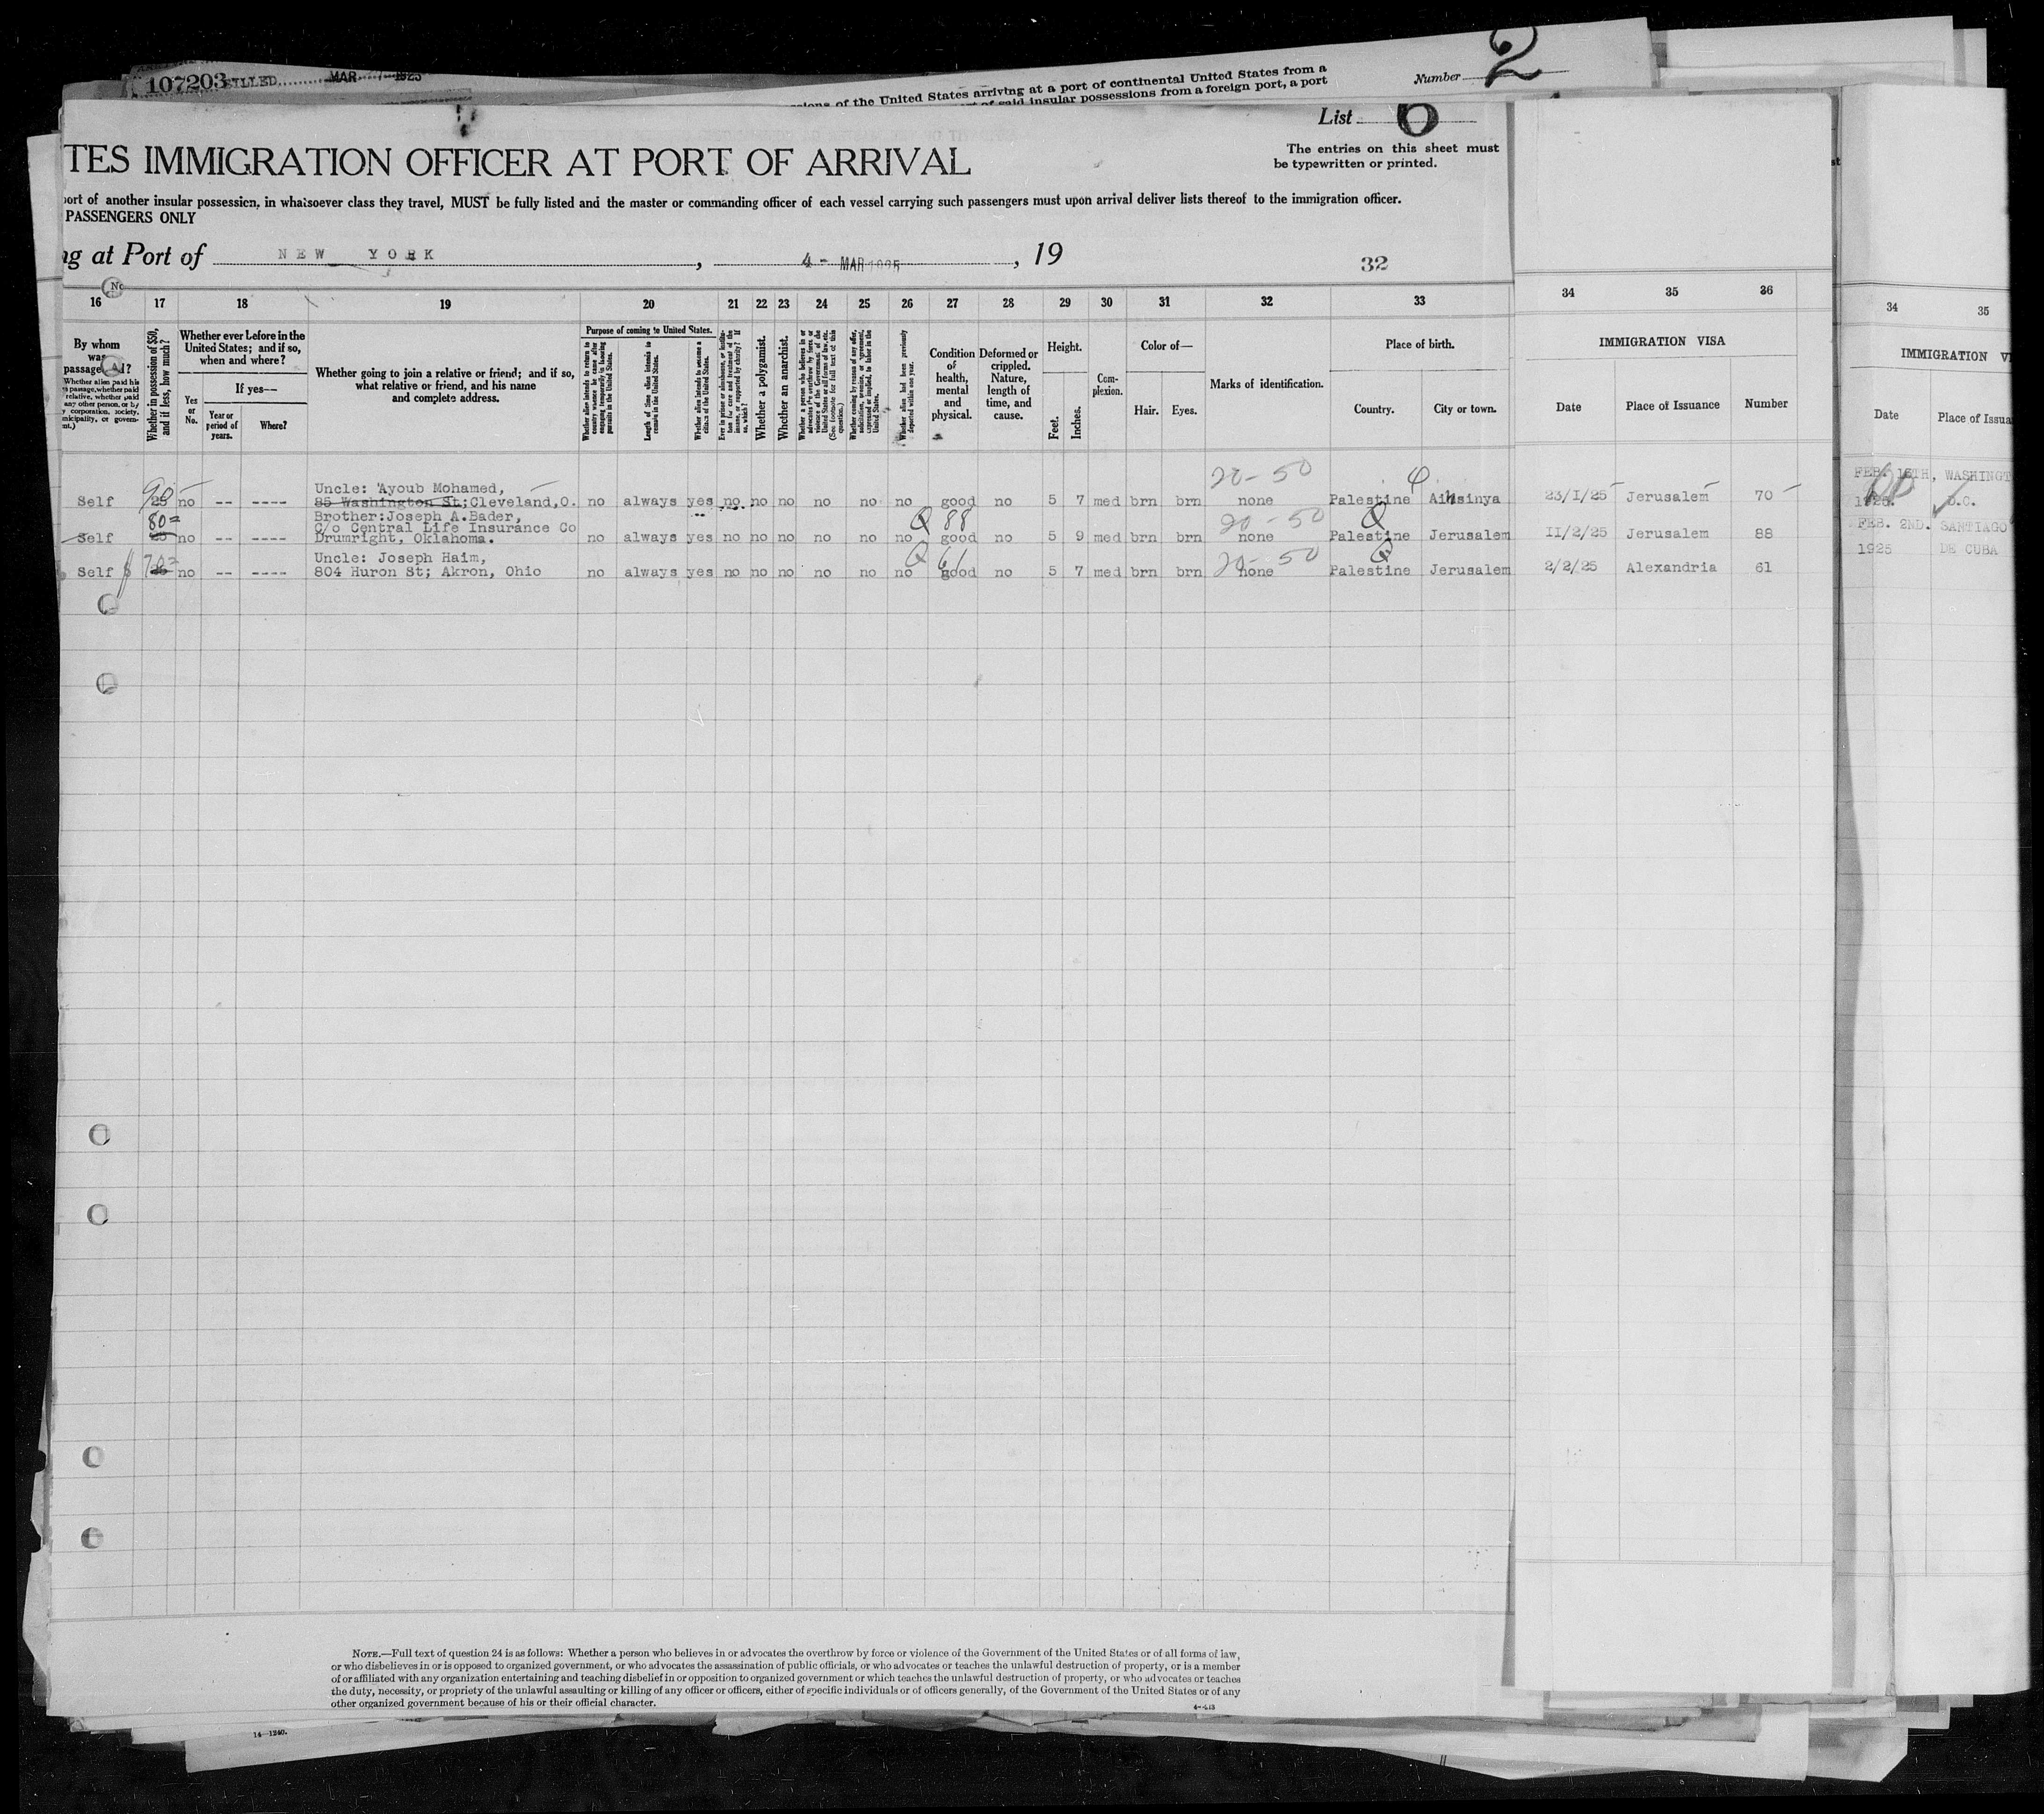 107203 FILLED MAR 7 1925
Number 2
sions of the United States arriving at a port of continental United States from a
of said insular possessions from a foreign port, a port
List 6
TES IMMIGRATION OFFICER AT PORT OF ARRIVAL
The entries on this sheet must
be typewritten or printed.
port of another insular possession, in whatsoever class they travel, MUST be fully listed and the master or commanding officer of each vessel carrying such passengers must upon arrival deliver lists thereof to the immigration officer.
PASSENGERS ONLY
ng at Port of NEW YORK, 4 - MAR 1925, 19
32
No
16 17 18 19 20 21 22 23 24 25 26 27 28 29 30 31 32 33 34 35 36
34 35
By whom
was
passage
Whether in possession of $50,
and if less, how much?
Whether ever before in the
United States; and if so,
when and where?
Yes
or
No.
If yes—
Year or
period of
years.
Where?
Whether going to join a relative or friend; and if so,
what relative or friend, and his name
and complete address.
Purpose of coming to United States.
Whether a polygamist.
Whether an anarchist.
Condition
of
health,
mental
and
physical.
Deformed or
crippled.
Nature,
length of
time, and
cause.
Height.
Feet.
Inches.
Com-
plexion.
Color of—
Hair.
Eyes.
Marks of identification.
Place of birth.
Country.
City or town.
IMMIGRATION VISA
Date
Place of Issuance
Number
IMMIGRATION VI
Date
Place of Issua
20-50
Uncle: Ayoub Mohamed,
Self 90 25 no -- ---- 85 Washington St; Cleveland, O. no always yes no no no no no no good no 5 7 med brn brn none Palestine Ainsinya 23/1/25 Jerusalem 70
Brother: Joseph A. Bader,
80= C/o Central Life Insurance Co Q 88 20-50 Q
Self 25 no -- ---- Drumright, Oklahoma. no always yes no no no no no no good no 5 9 med brn brn none Palestine Jerusalem 11/2/25 Jerusalem 88
Uncle: Joseph Haim, Q 61 20-50 Q
Self $ 25 no -- ---- 804 Huron St; Akron, Ohio no always yes no no no no no no good no 5 7 med brn brn none Palestine Jerusalem 2/2/25 Alexandria 61
FEB. 18TH, WASHINGT
1925. D.C.
FEB. 2ND. SANTIAGO
1925 DE CUBA
NOTE.—Full text of question 24 is as follows: Whether a person who believes in or advocates the overthrow by force or violence of the Government of the United States or of all forms of law,
or who disbelieves in or is opposed to organized government, or who advocates the assassination of public officials, or who advocates or teaches the unlawful destruction of property, or is a member
of or affiliated with any organization entertaining and teaching disbelief in or opposition to organized government or which teaches the unlawful destruction of property, or who advocates or teaches
the duty, necessity, or propriety of the unlawful assaulting or killing of any officer or officers, either of specific individuals or of officers generally, of the Government of the United States or of any
other organized government because of his or their official character.
14—1240.